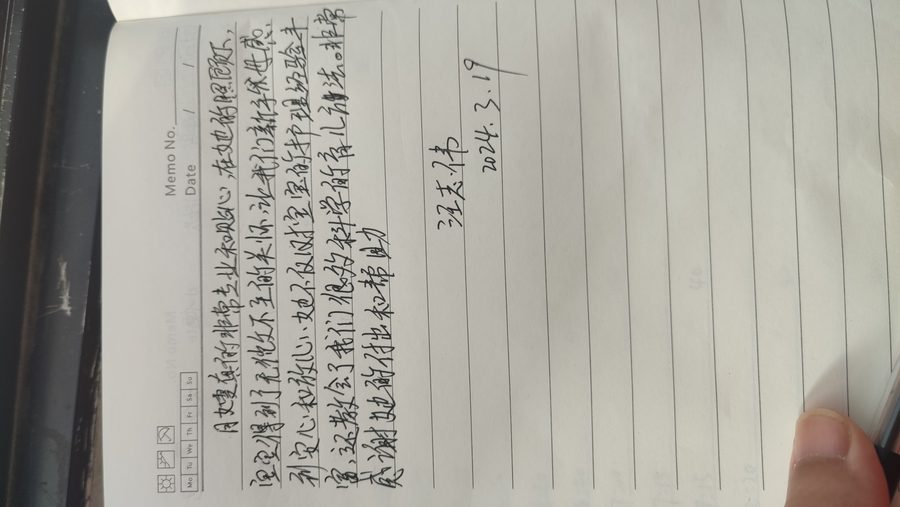 Memo No.
Date / /
Mo Tu We Th Fr Sa Su
月嫂真的非常专业和贴心,在她的照顾下,
宝宝得到了无微不至的关怀,让我们新手父母感
到安心和放心。她不仅对宝宝的护理经验丰
富,还教会了我们很多科学的育儿方法。非常
感谢她的付出和帮助
汪志伟
2024.3.19